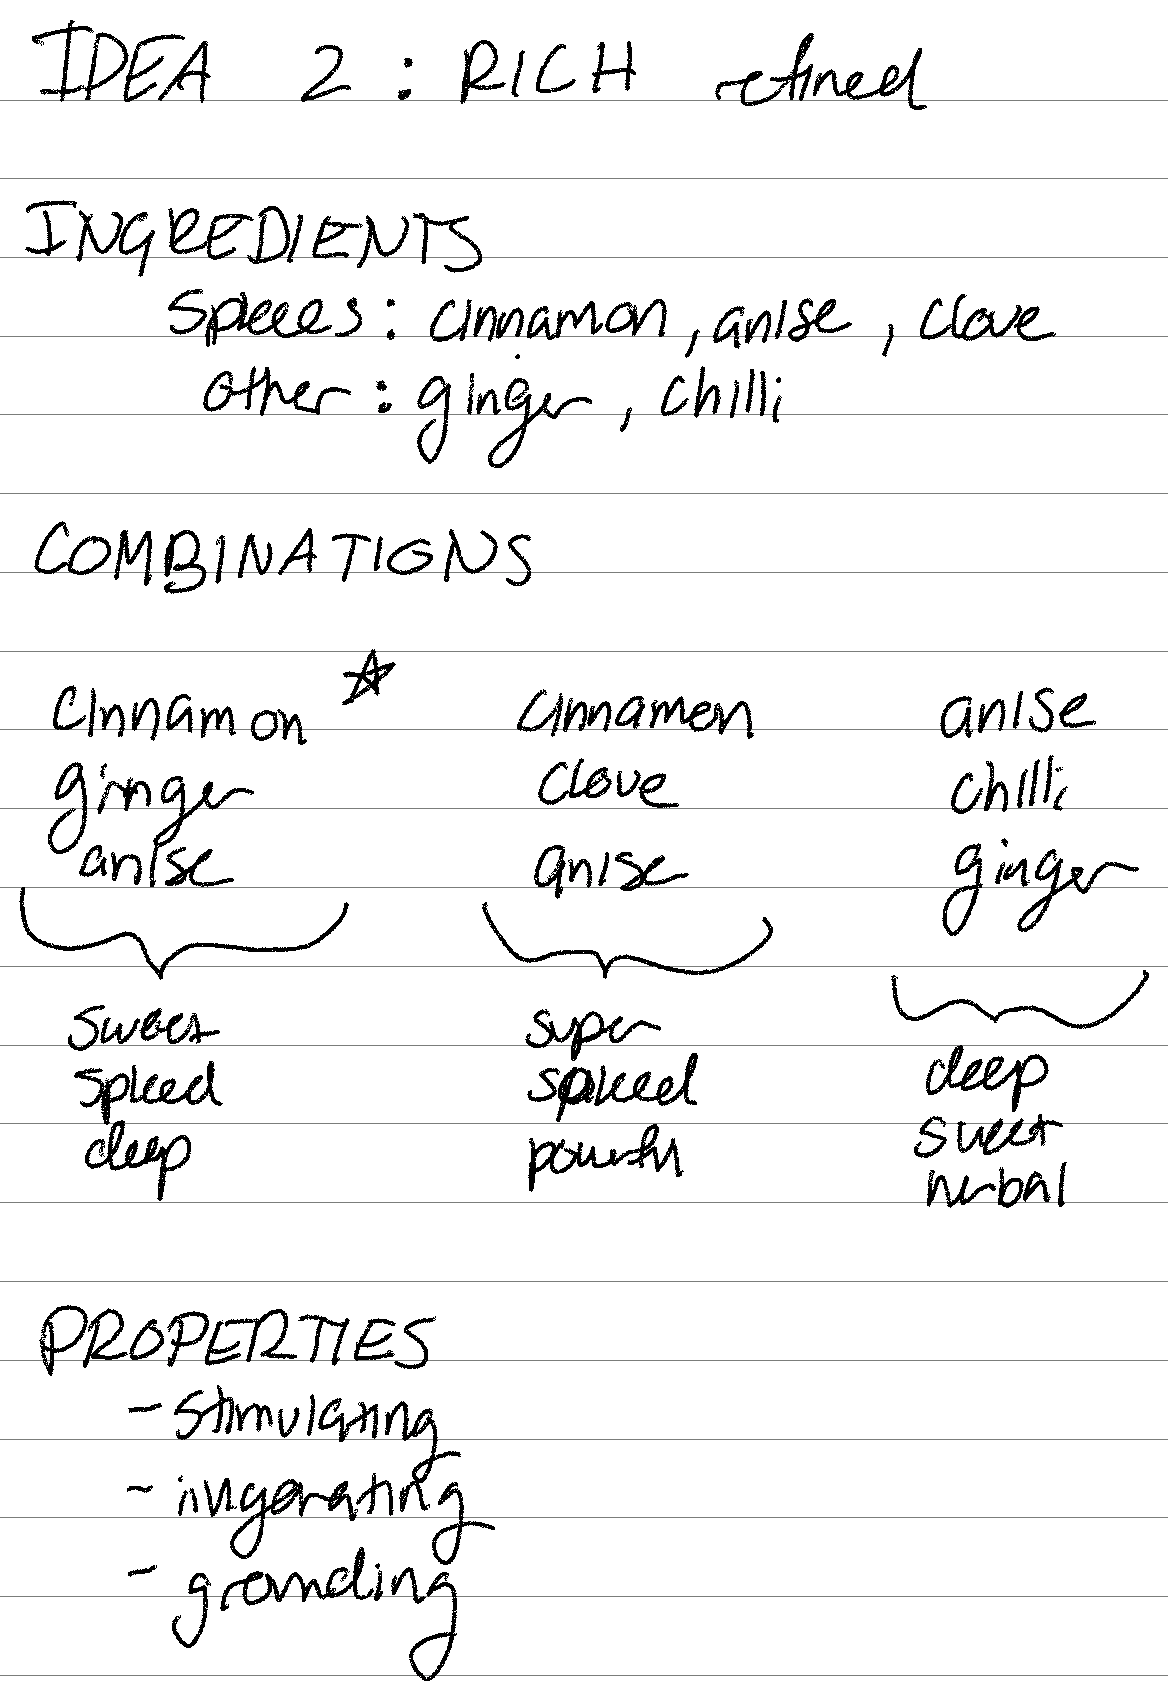 IDEA 2 : RICH refined
INGREDIENTS
Spices : cinnamon, anise, clove
other : ginger, chilli
COMBINATIONS
cinnamon ☆
ginger
anise
sweet
spiced
deep
cinnamon
clove
anise
super
spiced
powerful
anise
chilli
ginger
deep
sweet
herbal
PROPERTIES
- stimulating
- invigorating
- grounding